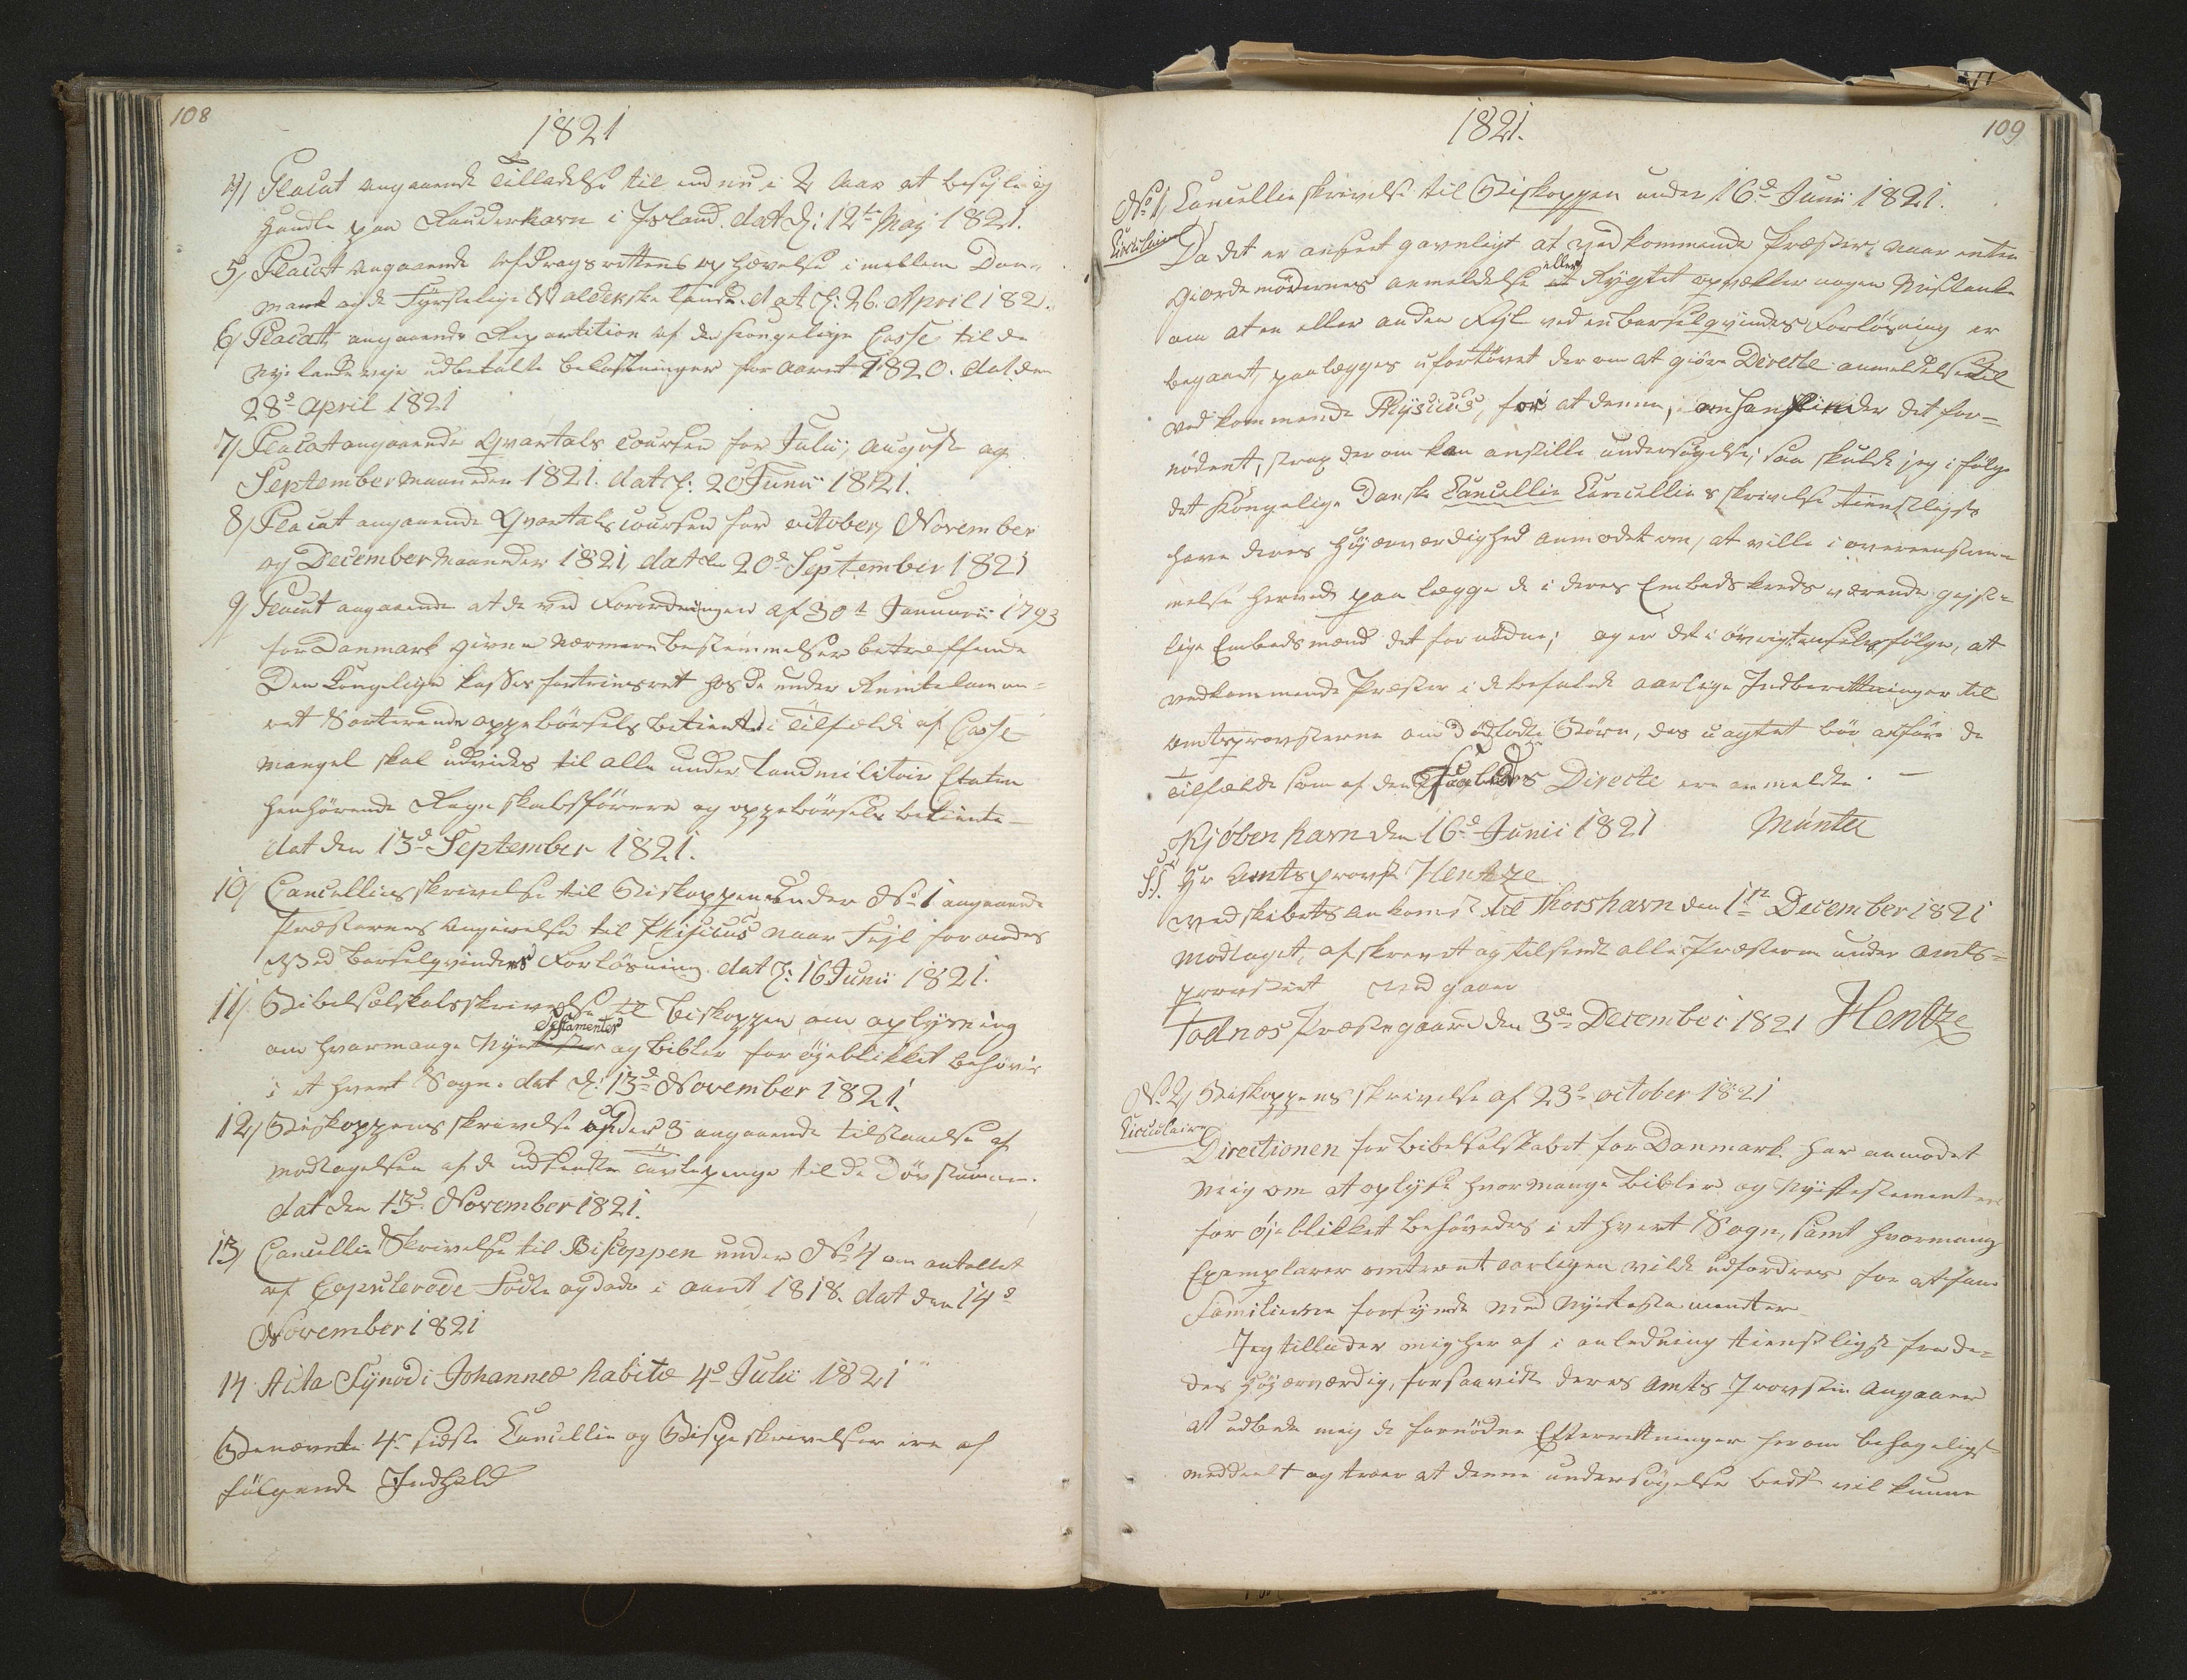 108
1821
4, Placat angaaende Tilladelse til endnu i 2 Aar at besejle og
Handle paa Rauderhavn i Jsland. dat d: 12te Maj 1821.
5, Placat angaaende Afdragsrettens ophævelse imellem Dan-
mark og de Fyrstelige Waldekske lande. dat d: 26. April 182.
6, Placat angaaende Repartition af de kongelige Casse til de
Nye landeveje udbetalte bekostninger for aaret 1820. dat den
28d April 1821
7, Placat angaaende Qvartals coursen for Julii, August og
September Maaneder 1821. dat d: 20 Junii 1821.
8, Placat angaaende Qvartals coursen for october, November
og December Maaneder 1821, dat d 20d September 1821
9, Placat angaaende at de ved Forordningen af 30te Januarii 1793
for Danmark givne nærmere bestemmelser betræffende
Den Kongelige Casses fortrinsret hos de under Rentekamme-
ret Sorterende oppebørsels betiente i Tilfælde af Casse-
mangel skal udvides til alle under Landmilitair Etaten
henhørende Regnskabsførere og oppebørsels betiente-
dat den 13d September 1821.
10, Cancellieskrivelse til Biskoppen under No 1 angaaende
Præsternes Angivelse til Phisicus naar Fejl formodes
Ved Barselqvinders Forløsning. dat d: 16 Junii 1821.
11, Bibelselskabsskrivelse til Biskoppen om oplysning
om hvormange Nye Testamenter og Bibler for øjeblikket behøves
i et hvert Sogn. dat d: 13d November 1821.
12, Biskoppens skrivelse under 3 angaaende tilstaaelse af
modtagelsen af de udsendte Tavlepenge til de Døvstumme.
dat den 13d November 1821.
13, Cancellie Skrivelse til Biscoppen under No 4 om antallet
af Copulerede Fødte og døde i aaret 1818. dat den 14d
November 1821
14 Acta Synodi Johanneæ habitæ 4d Julii 1821
Benævnte 4re sidste Cancellie og Bispe skrivelser ere af
følgende Indhold
109
1821.
No 1, Cancellieskrivelse til Biskoppen under 16d Junii 1821.
Circulaire
Da det er anseet gavnligt at vedkommende Præster, naar enten
Giordemødernes anmeldelse eller Rygtet opvækker nogen Mistanke
om at en eller anden Fejl ved en barselqvindes Forløsning er
begaaet, paalægges ufortøvet derom at giøre Directe anmeldelse til
vedkommende Physicus, for at denne, om han finder det for-
nødent, strax derom kan anstille undersøgelse; saa skulde jeg ifølge
det Kongelige Danske Cancellie Cancellies skrivelse tienstligst
have deres Højærværdighed anmodet om, at ville i overeenstem-
melse herved paalægge de i deres Embedskreds værende gejst-
lige Embedsmænd det fornødne; og er det i øvrigt en selvfølge, at
vedkommende Præster i de befalede aarlige Indberettninger til
Amtsprovsterne om dødfødte Børn, des uagtet bør anføre de
Tilfælde som af dem saaledes Directe ere anmeldte. —
Kjøbenhavn den 16d Junii 1821 Münter
S.T. Hr Amtsprovst Hentze
ved skibets ankomst til Thorshavn den 1te December 1821
modtaget, afskrevet og tilsendt alle Præsterne under Amts-
provstiet
Todnes Præstegaard den 3die December 1821 Hentze
No 2, Biskoppens skrivelse af 23d october 1821
Circulaire
Directionen for bibelselskabet for Danmark har anmodet
Mig om at oplyse hvormange bibler og Nyetestamenter
for øjeblikket behøvedes i et hvert Sogn, samt hvormange
Exemplarer omtrent aarligen vilde udfordres for at faae
Familierne forsynede med Nyetestamenter
Jeg tillader mig her af i anledning tienstligst fra de-
res Højærværdig, forsaavidt deres Amts Provstie Angaaer
at udbede mig de fornødne Efterrettninger herom behageligst
meddeelt og troer at denne undersøgelse bedst vil kunne